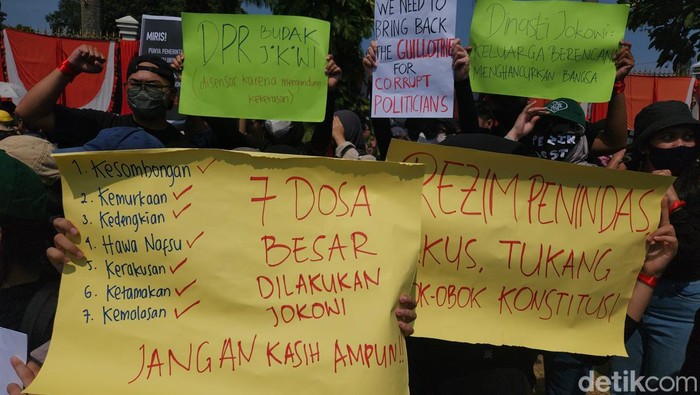 MIRIS!
DPR BUDAK
J*K*WI
(disensor karena mengandung
kekerasan)
WE NEED TO
BRING BACK
THE GUILLOTINE
FOR
CORRUPT
POLITICIANS
Dinasti Jokowi:
KELUARGA BERENCANA
MENGHANCURKAN BANGSA
1. Kesombongan ✓
2. Kemurkaan ✓
3. Kedengkian ✓
4. Hawa Nafsu ✓
5. Kerakusan ✓
6. Ketamakan ✓
7. Kemalasan ✓
7 DOSA
BESAR
DILAKUKAN
JOKOWI
JANGAN KASIH AMPUN!!
REZIM PENINDAS,
KUS, TUKANG
OK-OBOK KONSTITUSI
detikcom